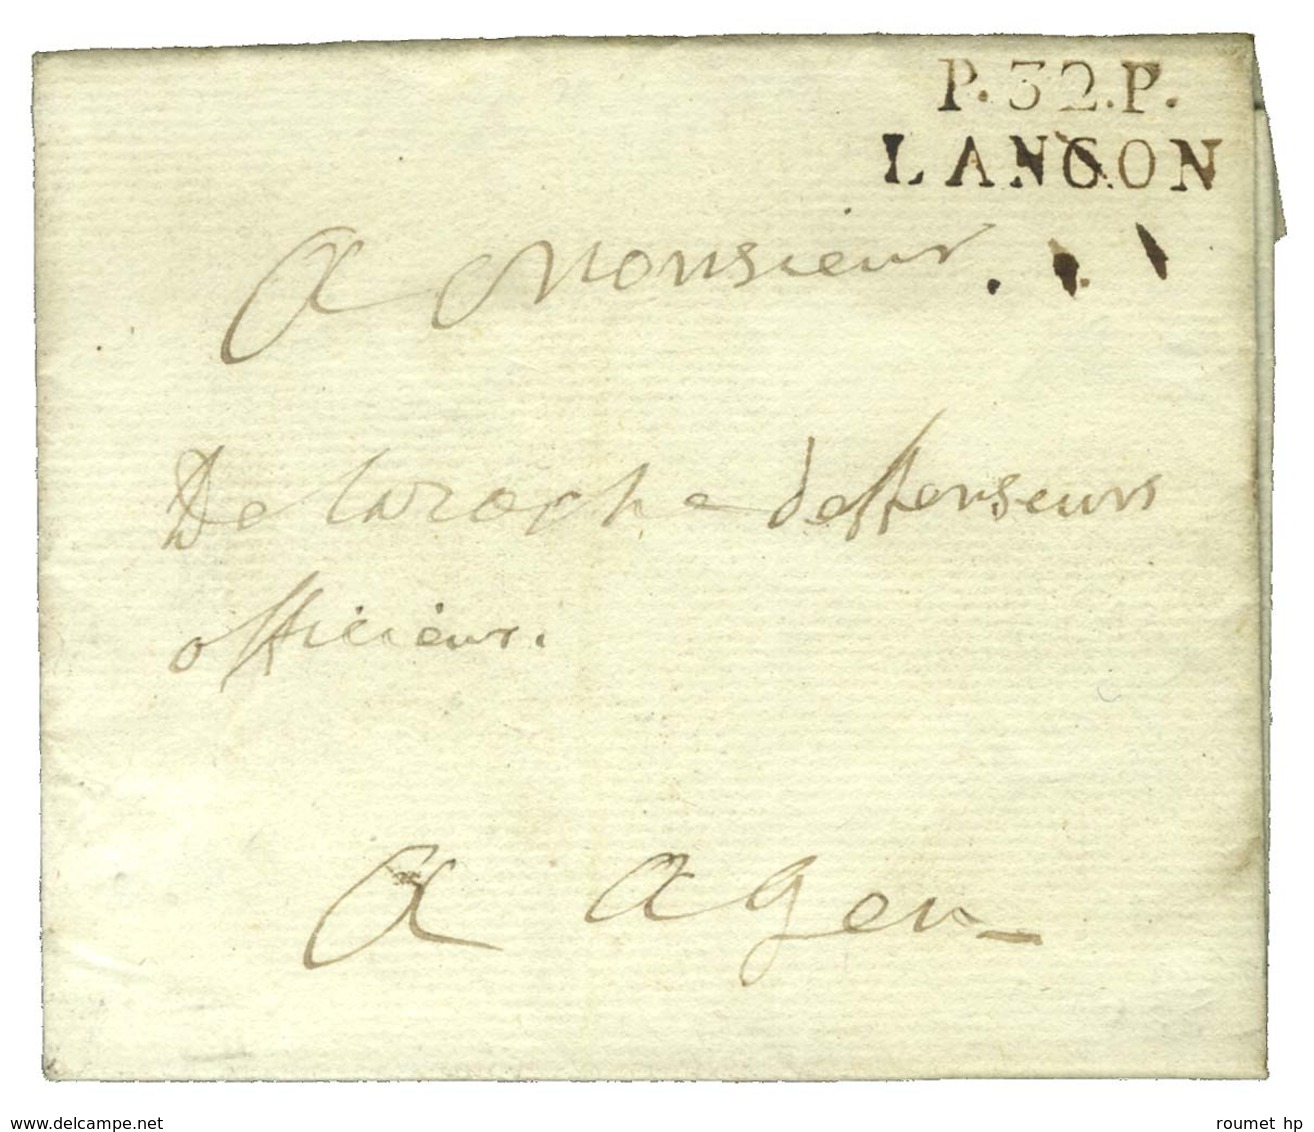 P.32.P.
LANGON
A Monsieur
De laroche deffenseurs
officieux.
A Agen
www.delcampe.net
roumet hp